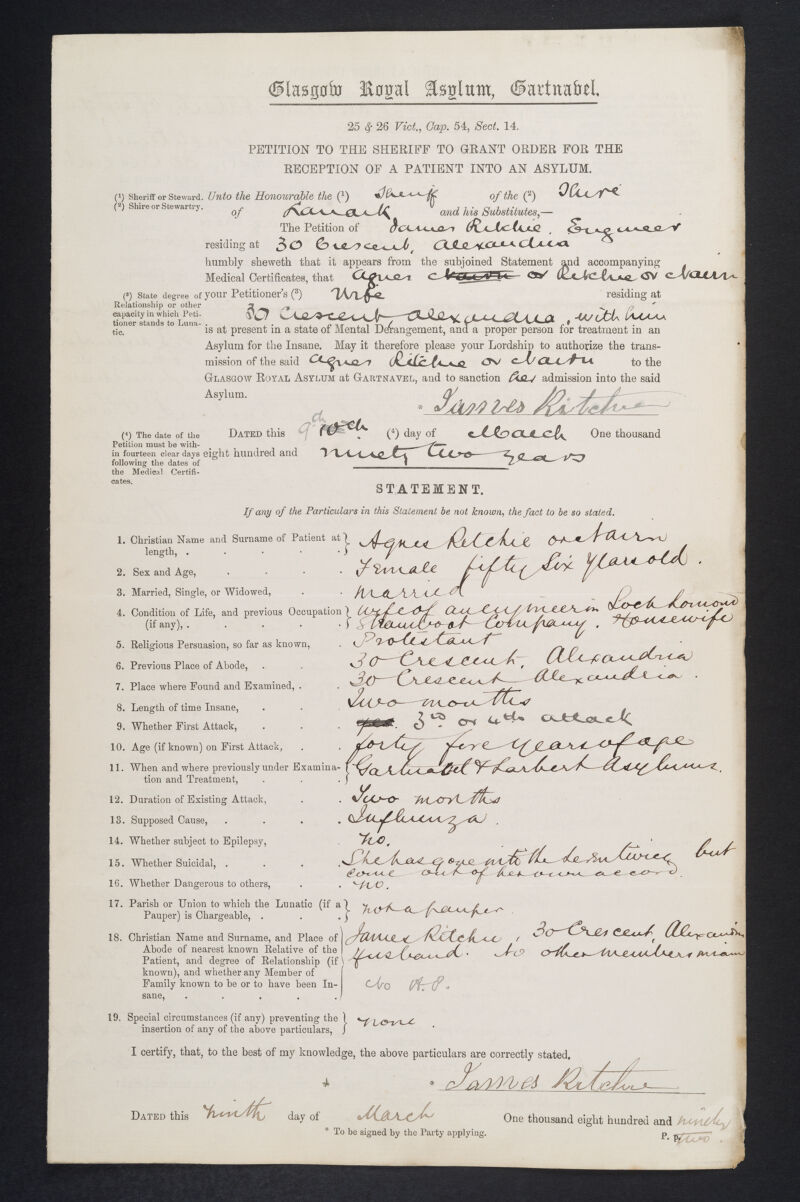 Glasgow Royal Asylum, Gartnavel.
25 & 26 Vict., Cap. 54, Sect. 14.
PETITION TO THE SHERIFF TO GRANT ORDER FOR THE
RECEPTION OF A PATIENT INTO AN ASYLUM.
(1) Sheriff or Steward. Unto the Honourable the (1) Sheriff of the (2) Shire
(2) Shire or Stewartry. of Lanark and his Substitutes,—
The Petition of James Ritchie, Engineer
residing at 30 Crescent, Alexandria
humbly sheweth that it appears from the subjoined Statement and accompanying
Medical Certificates, that Agnes Nairn or Ritchie or Nairn
(3) State degree of Relationship or other capacity in which Petitioner stands to Lunatic.
your Petitioner's (3) Wife residing at
30 Crescent Alexandria, with him
is at present in a state of Mental Derangement, and a proper person for treatment in an
Asylum for the Insane. May it therefore please your Lordship to authorize the trans-
mission of the said Agnes Ritchie or Nairn to the
GLASGOW ROYAL ASYLUM at GARTNAVEL, and to sanction her admission into the said
Asylum.
* James Ritchie
(4) The date of the Petition must be within fourteen clear days following the dates of the Medical Certificates.
DATED this 9th 10th (4) day of March One thousand
eight hundred and ninety two years
STATEMENT.
If any of the Particulars in this Statement be not known, the fact to be so stated.
1. Christian Name and Surname of Patient at length, . Agnes Ritchie or Nairn
2. Sex and Age, . Female fifty Six Years old.
3. Married, Single, or Widowed, . Married
4. Condition of Life, and previous Occupation (if any), . Wife of an engineer in Loch Lomond
Steamboat Company. Housewife
5. Religious Persuasion, so far as known, . Protestant
6. Previous Place of Abode, . 30 Crescent, Alexandria
7. Place where Found and Examined, . 30 Crescent Alexandria.
8. Length of time Insane, . Two months
9. Whether First Attack, . 3rd or 4th attack
10. Age (if known) on First Attack, . forty five years of age
11. When and where previously under Examination and Treatment, . Gartnavel & Larbert Asylums.
12. Duration of Existing Attack, . Two months
13. Supposed Cause, . Influenza.
14. Whether subject to Epilepsy, no.
15. Whether Suicidal, . She has gone into the twice, but
come out of her own accord.
16. Whether Dangerous to others, . no.
17. Parish or Union to which the Lunatic (if a Pauper) is Chargeable, . not a pauper
18. Christian Name and Surname, and Place of Abode of nearest known Relative of the Patient, and degree of Relationship (if known), and whether any Member of Family known to be or to have been Insane, . James Ritchie, 30 Crescent, Alexandria
Husband. No other members insane
No H.P.
19. Special circumstances (if any) preventing the insertion of any of the above particulars, none.
I certify, that, to the best of my knowledge, the above particulars are correctly stated.
* * James Ritchie
DATED this ninth day of March One thousand eight hundred and ninety
two.
* To be signed by the Party applying.
P.